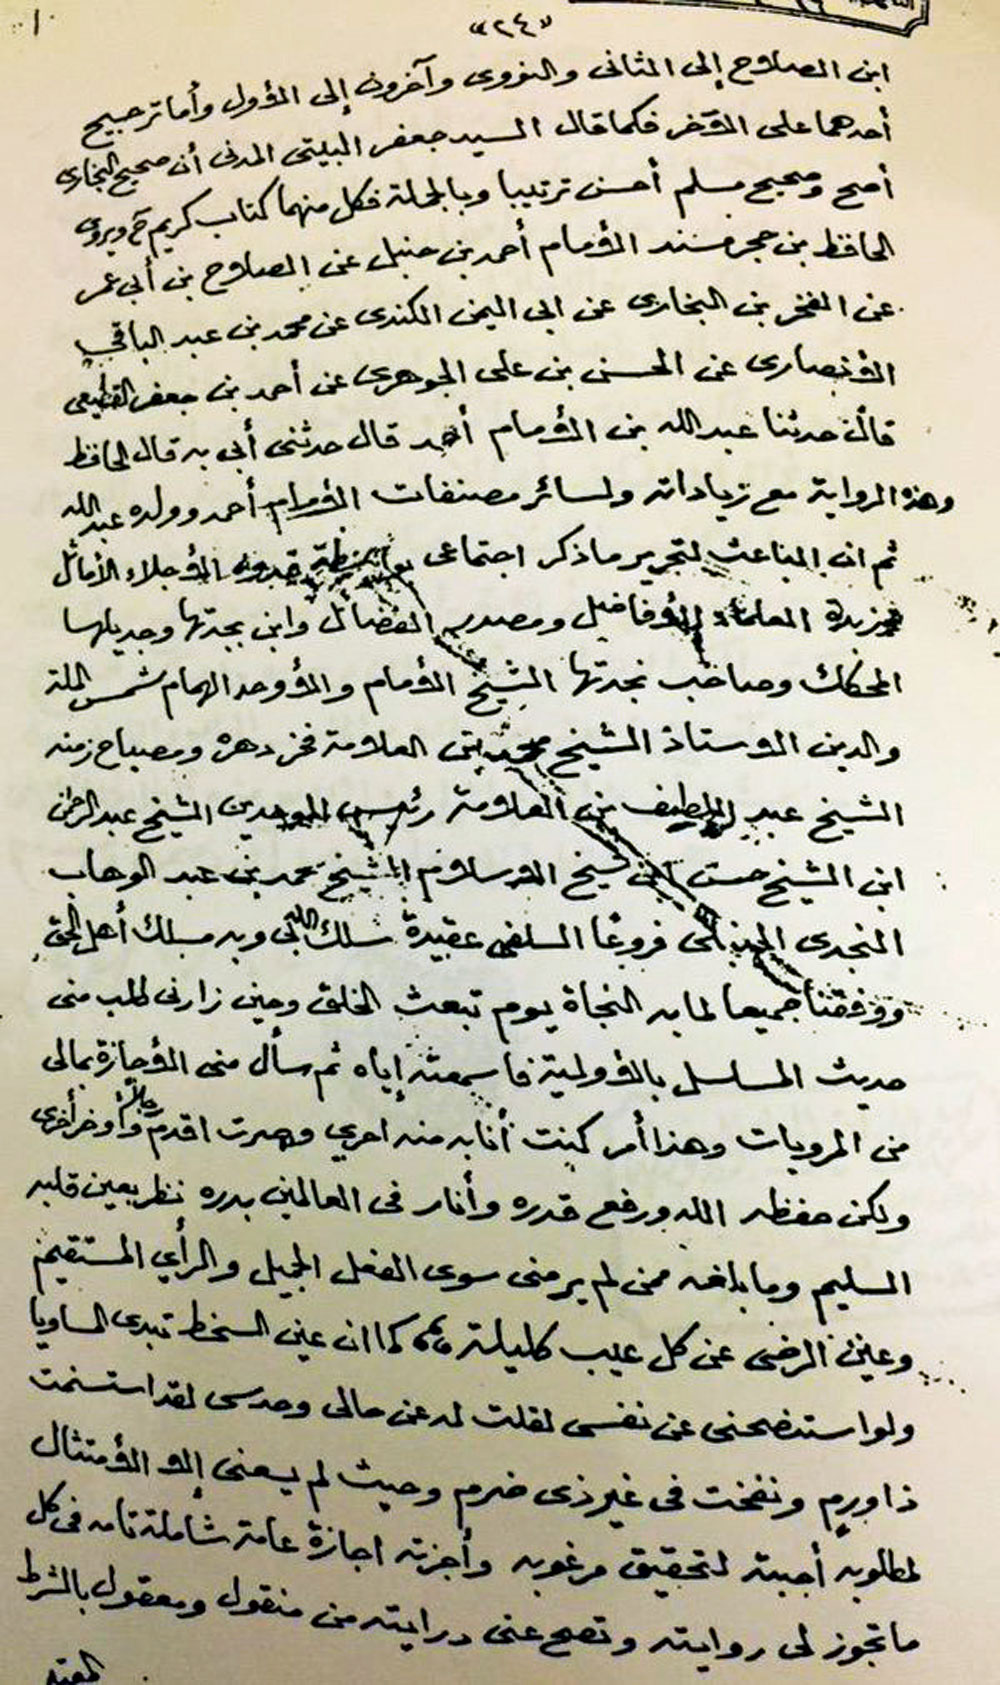 «٢٤»
ابن الصلاح إلى الثانى والنووى وآخرون إلى الأول وأما ترجيح
أحدهما على الآخر فكما قال السيد جعفر البيتى المدنى أن صحيح البخارى
أصح وصحيح مسلم أحسن ترتيبا وبالجملة فكل منهما كتاب كريم ح ويروى
الحافظ بن حجر مسند الإمام أحمد بن حنبل عن الصلاح بن أبى عمر
عن الفخر بن البخارى عن ابى اليمن الكندى عن محمد بن عبد الباقى
الأنصارى عن الحسن بن على الجوهرى عن أحمد بن جعفر القطيعى
قال حدثنا عبد الله بن الإمام أحمد قال حدثنى أبى به قال الحافظ
وهذه الرواية مع زياداته ولسائر مصنفات الإمام أحمد وولده عبد الله
ثم ان الباعث لتحرير ما ذكر اجتماعى قدوة الأجلاء الأماثل
وزبدة العلماء الأفاضل ومصدر الفضائل وابن بجدتها وجذيلها
المحكك وصاحب نجدتها الشيخ الإمام والأوحد الهمام شمس الملة
والدين الاستاذ الشيخ محمد بن العلامة فخر دهره ومصباح زمنه
الشيخ عبد اللطيف بن العلامة رئيس الموحدين الشيخ عبد الرحمن
ابن الشيخ حسن ابن شيخ الإسلام الشيخ محمد بن عبد الوهاب
النجدى الحنبلى فروعا السلفى عقيدة سلك الله بى وبه مسلك أهل الحق
ووفقنا جميعا لما به النجاة يوم تبعث الخلق وحين زارنى طلب منى
حديث المسلسل بالأولية فاسمعته إياه ثم سأل منى الإجازة بمالى
من المرويات وهذا أمر كنت أنا به منه احرى وصرت اقدم رجلا وأوخر أخرى
ولكن حفظه الله ورفع قدره وأنار فى العالمين بدره نظر بعين قلبه
السليم وما بلغه ممن لم ير منى سوى الفعل الجميل والرأي المستقيم
وعين الرضى عن كل عيب كليلة ،، كما ان عين السخط تبدى المساويا
ولو استنصحنى عن نفسى لقلت له عن حالى وحدسى لقد استسمنت
ذا ورم ونفخت فى غير ذى ضرم وحيث لم يسعنى إلا الأمتثال
لمطلوبه أجبته لتحقيق مرغوبه وأجزته اجازة عامة شاملة تامه فى كل
ما تجوز لى روايته وتصح عنى درايته من منقول ومعقول بالشرط
المعتبر